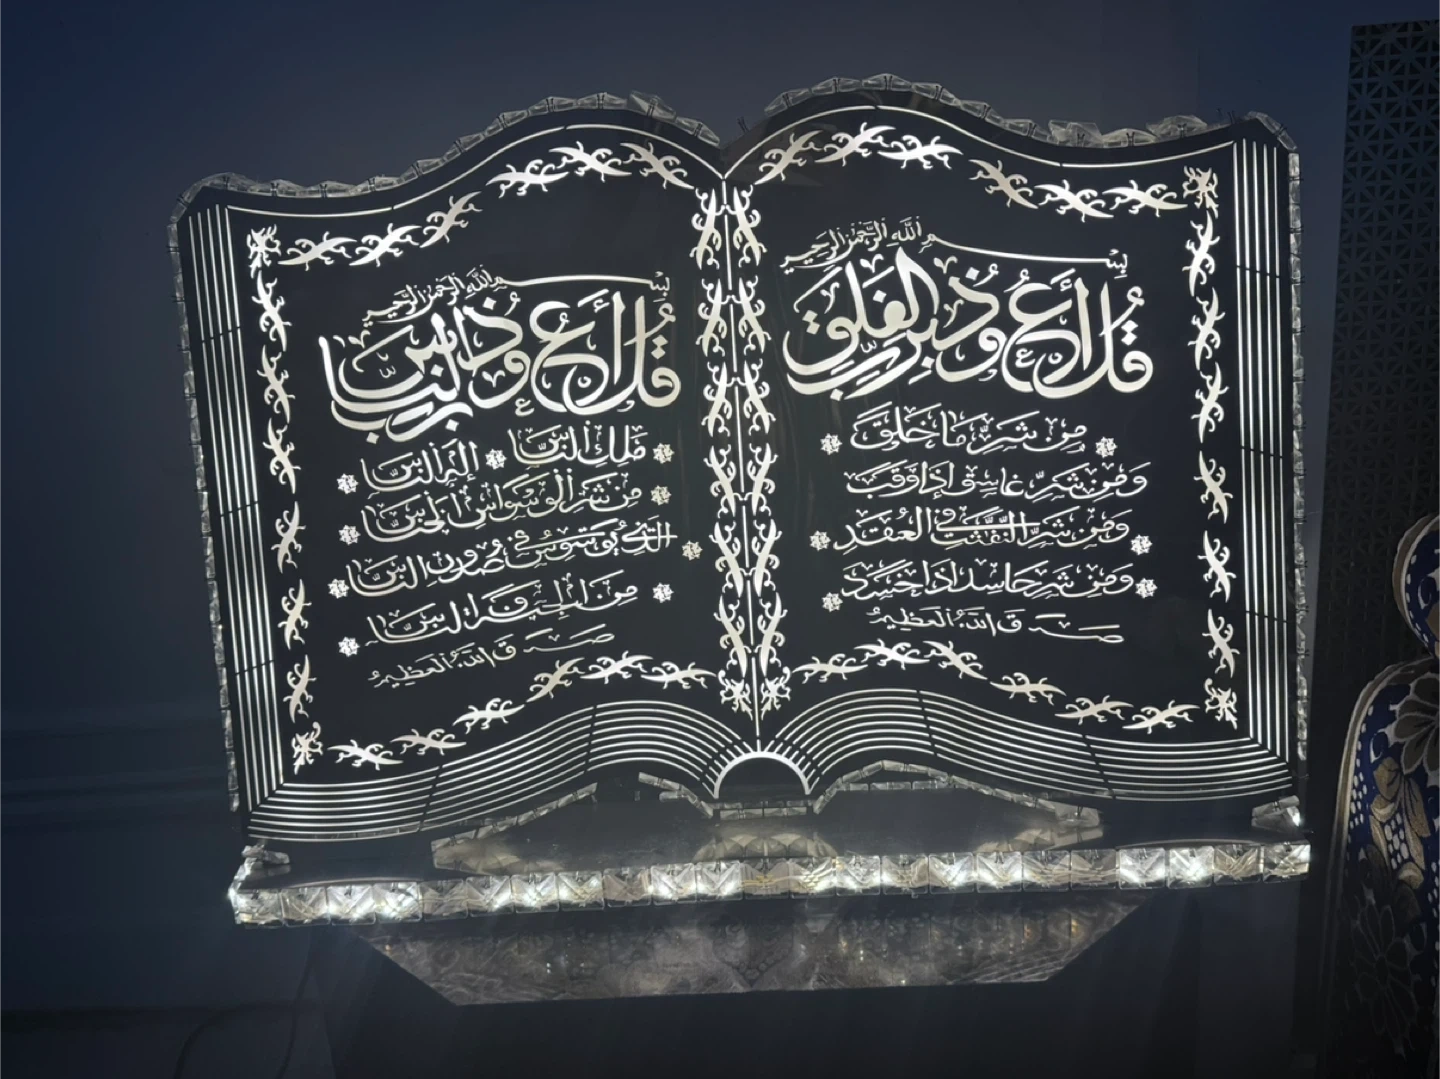 بِسْمِ اللهِ الرَّحْمٰنِ الرَّحِيمِ
قُلْ أَعُوذُ بِرَبِّ الْفَلَقِ
مِنْ شَرِّ مَا خَلَقَ
وَمِنْ شَرِّ غَاسِقٍ إِذَا وَقَبَ
وَمِنْ شَرِّ النَّفّٰثٰتِ فِي الْعُقَدِ
وَمِنْ شَرِّ حَاسِدٍ اِذَا حَسَدَ
صَدَقَ اللهُ الْعَظِيمُ
بِسْمِ اللهِ الرَّحْمٰنِ الرَّحِيمِ
قُلْ أَعُوذُ بِرَبِّ النَّاسِ
مَلِكِ النَّاسِ إِلٰهِ النَّاسِ
مِنْ شَرِّ الْوَسْوَاسِ الْخَنَّاسِ
الَّذِي يُوَسْوِسُ فِي صُدُورِ النَّاسِ
مِنَ الْجِنَّةِ وَالنَّاسِ
صَدَقَ اللهُ الْعَظِيمُ